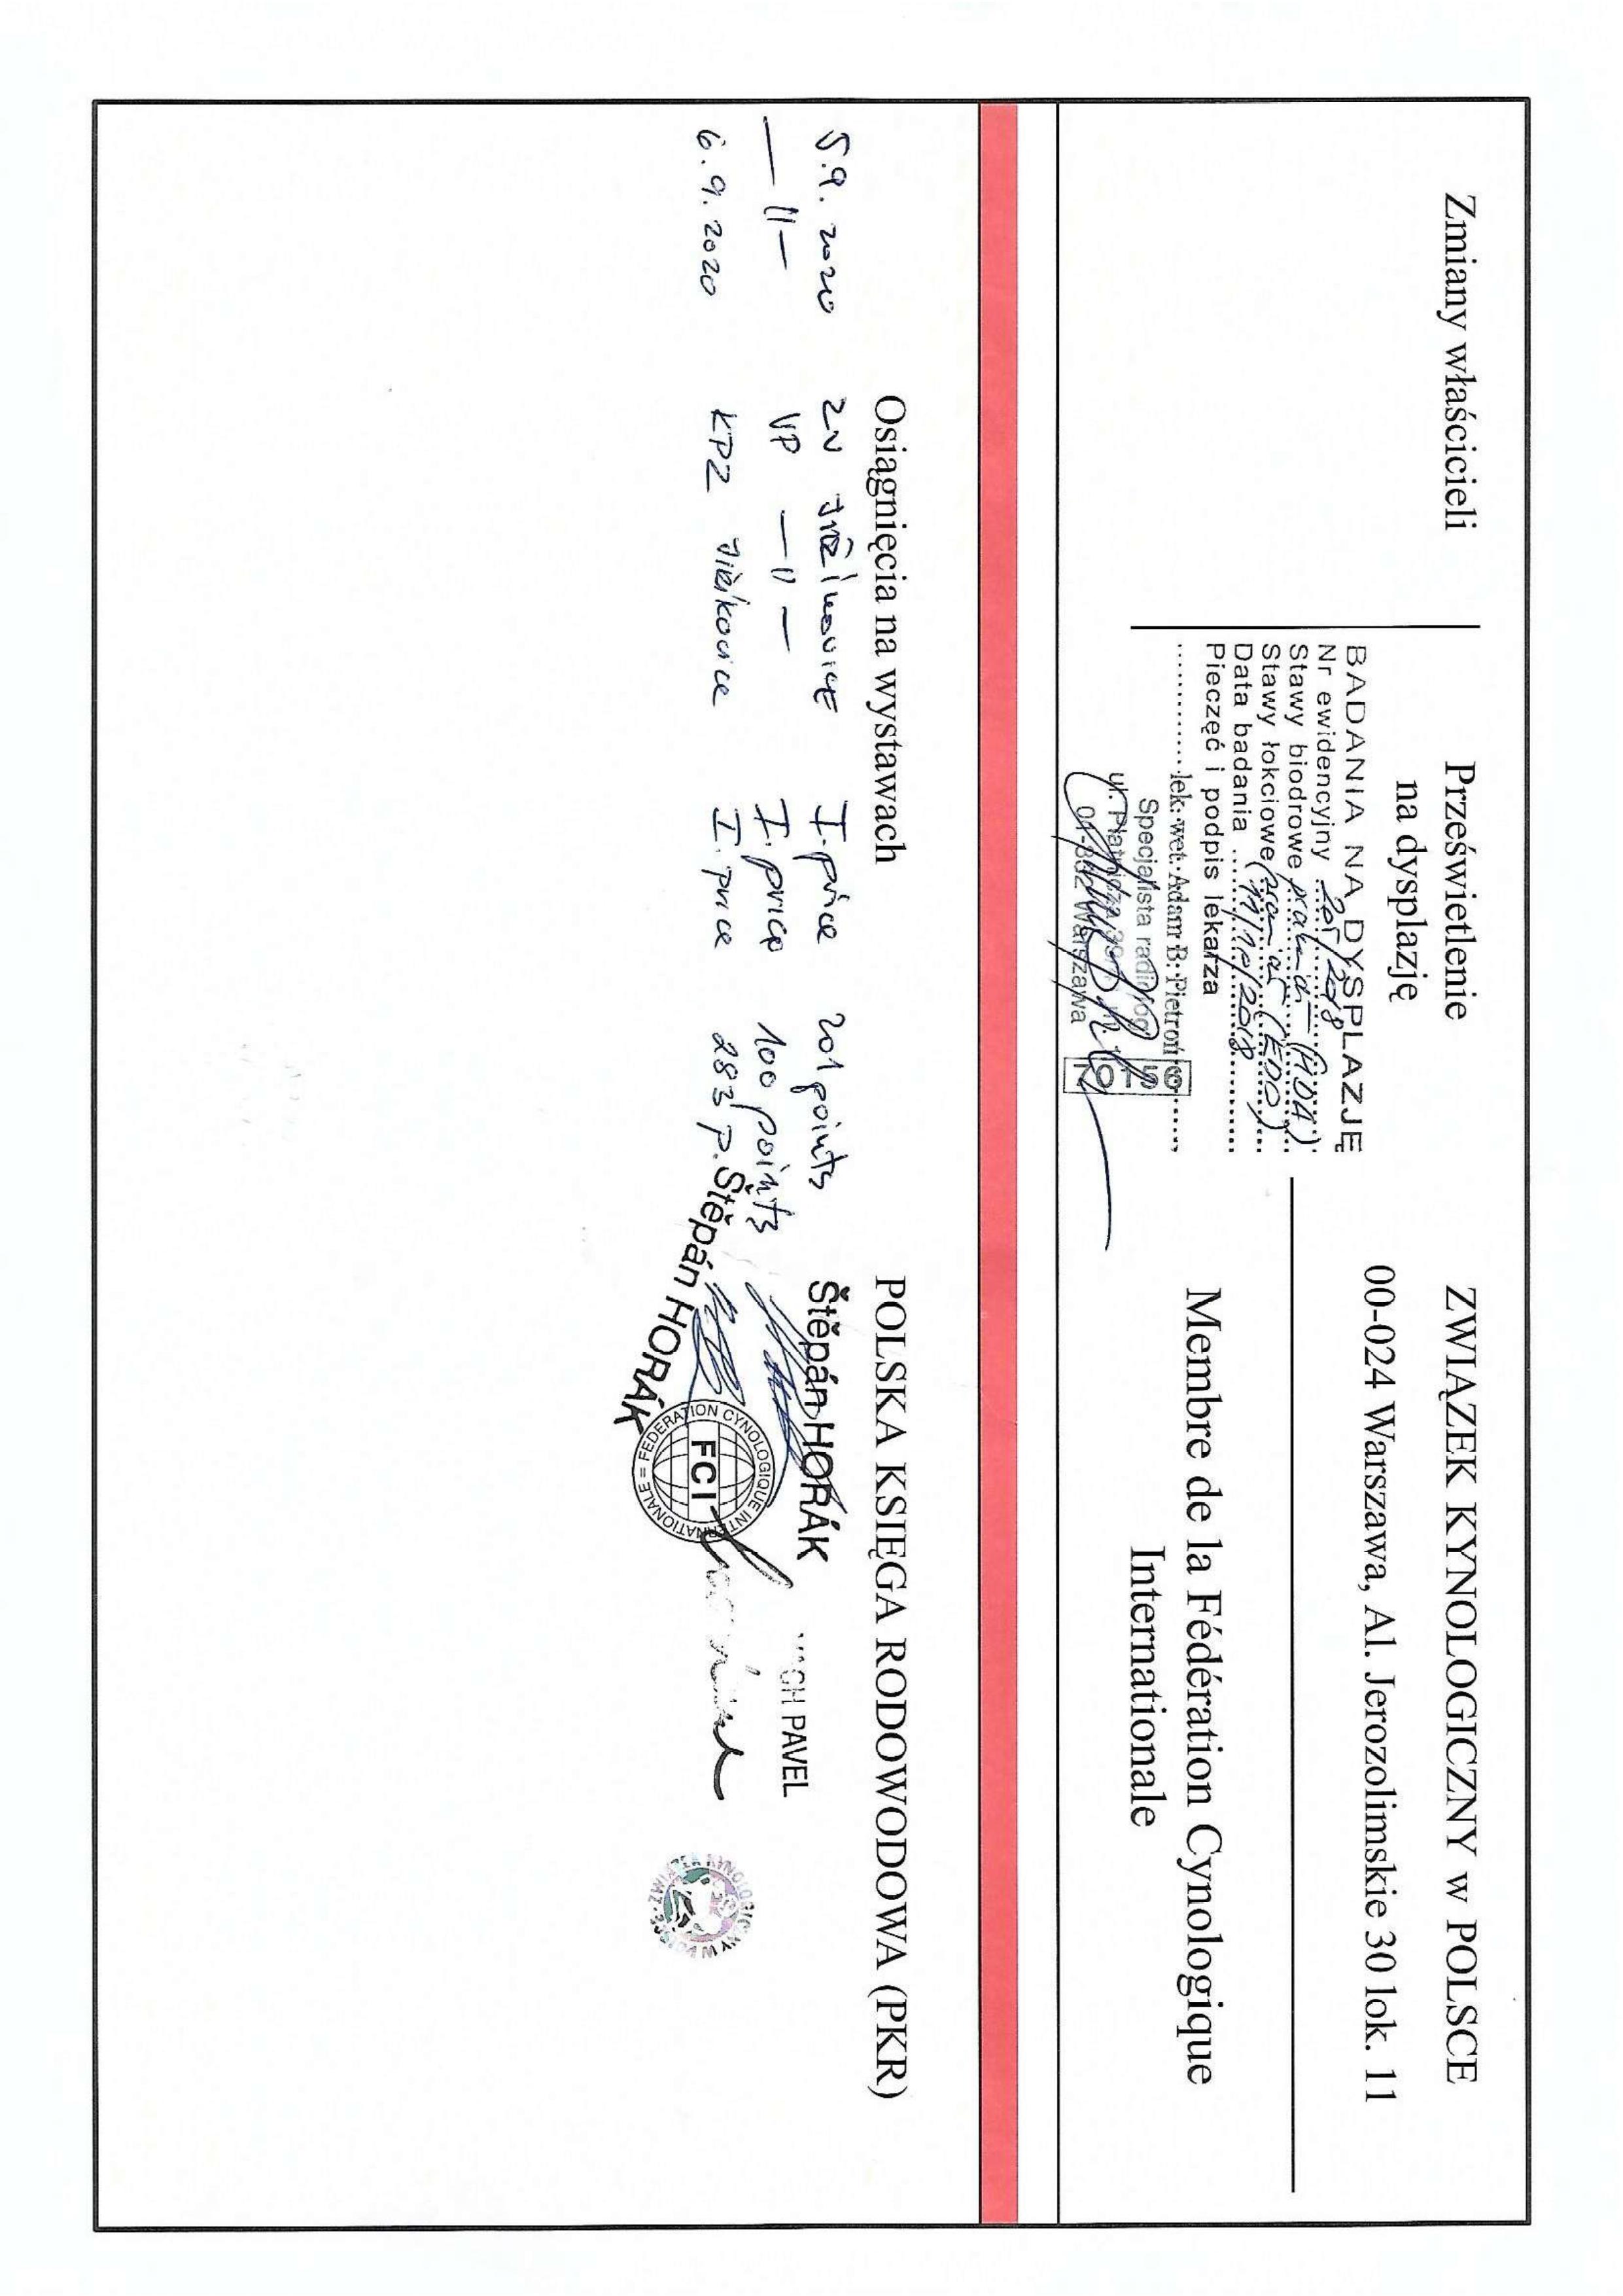 Zmiany właścicieli
Prześwietlenie
na dysplazję
BADANIA NA DYSPLAZJĘ
Nr ewidencyjny 205/2018
Stawy biodrowe (HDA)
Stawy łokciowe (ED0)
Data badania 11/10/2018
Pieczęć i podpis lekarza
lek. wet. Adam B. Pietroń
Specjalista radiolog
ul. Płatnicza
Warszawa
70156
ZWIĄZEK KYNOLOGICZNY w POLSCE
00-024 Warszawa, Al. Jerozolimskie 30 lok. 11
Membre de la Fédération Cynologique
Internationale
Osiągnięcia na wystawach
5.9. 2020 ZV Jiříkovice I. price 201 points
— 〃 — VP — 〃 — I. price 100 points
6.9. 2020 KPZ Jiříkovice I. price 283 p.
POLSKA KSIĘGA RODOWODOWA (PKR)
Štěpán HORÁK
PAVEL
Štěpán HORÁK
FEDERATION CYNOLOGIQUE INTERNATIONALE
FCI